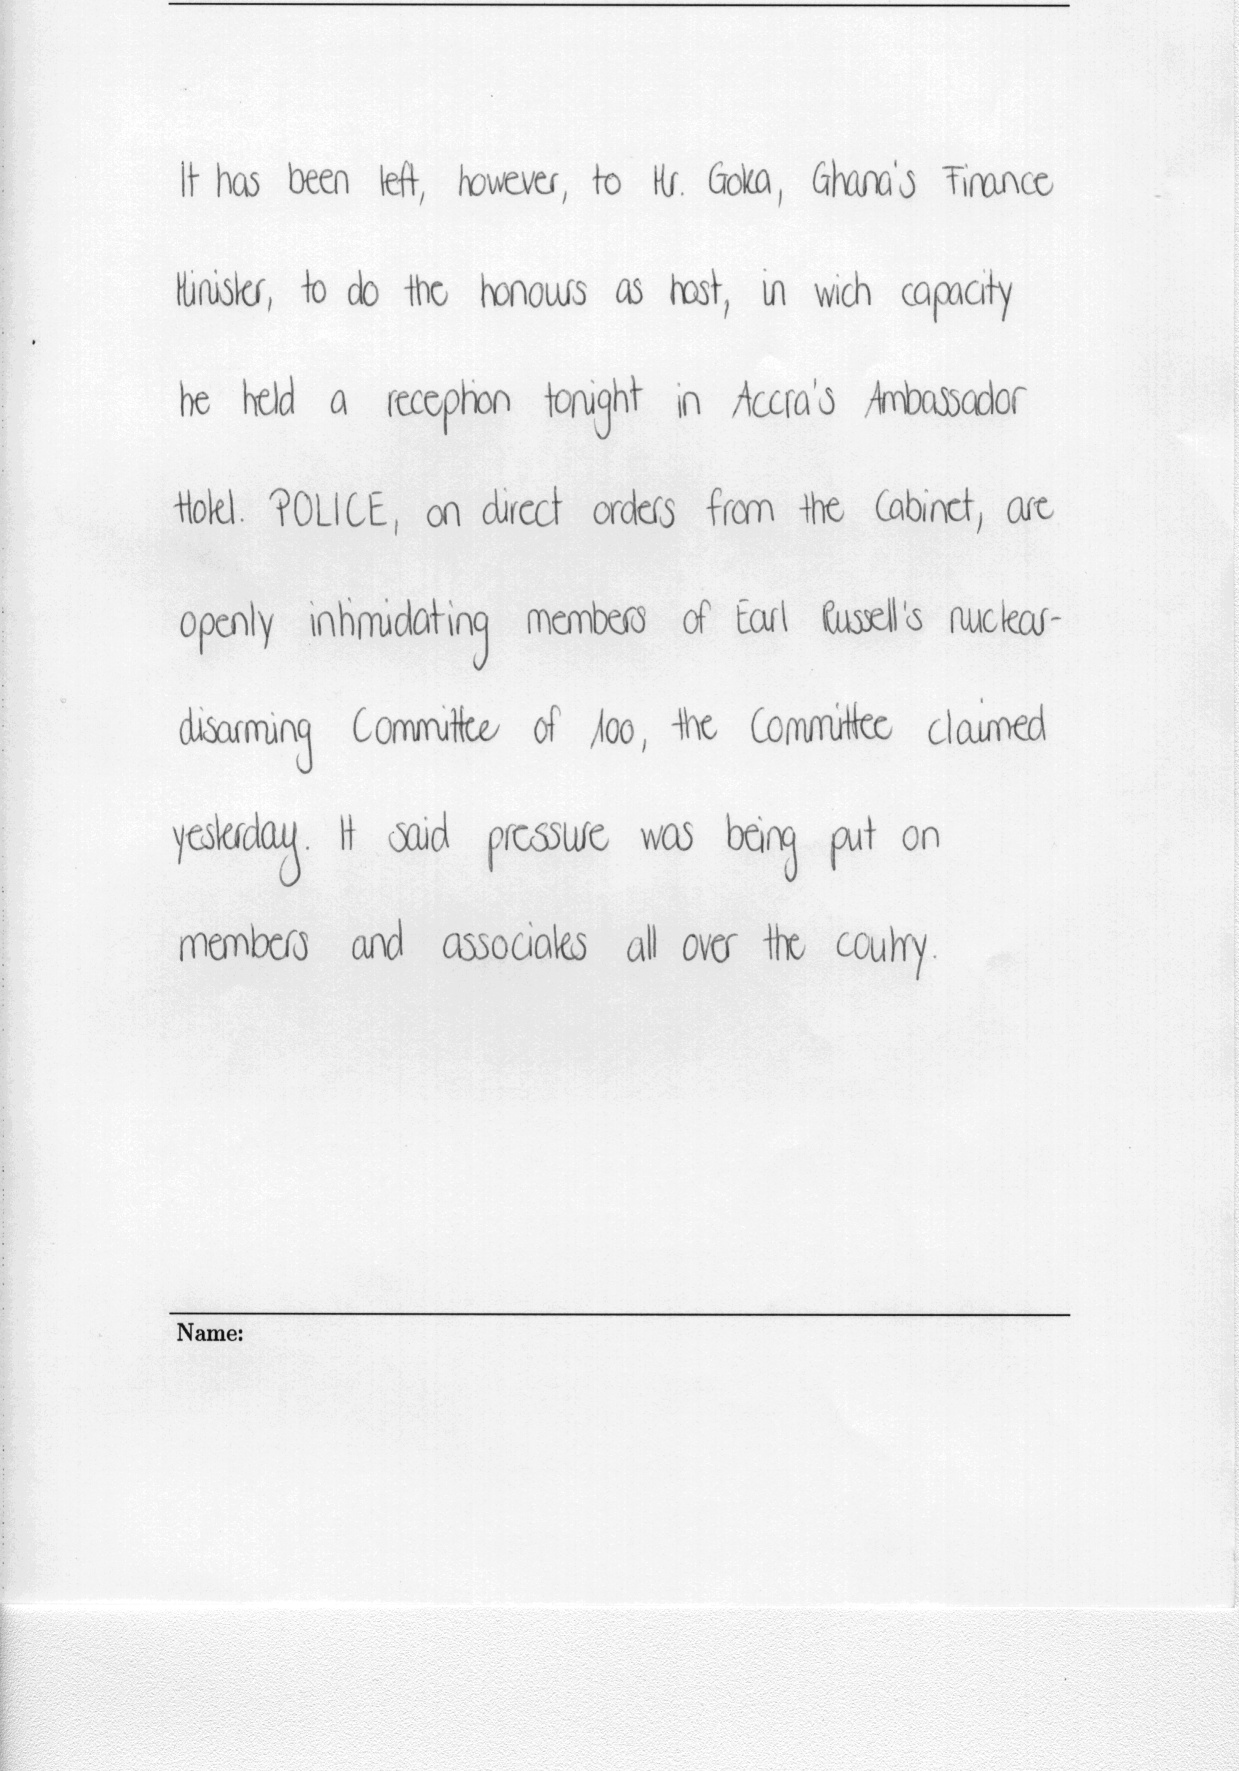 It has been left, however, to Mr. Goka, Ghana's Finance
Minister, to do the honours as host, in wich capacity
he held a reception tonight in Accra's Ambassador
Hotel. POLICE, on direct orders from the Cabinet, are
openly intimidating members of Earl Russell's nuclear-
disarming Committee of 100, the Committee claimed
yesterday. It said pressure was being put on
members and associates all over the coutry.
Name: